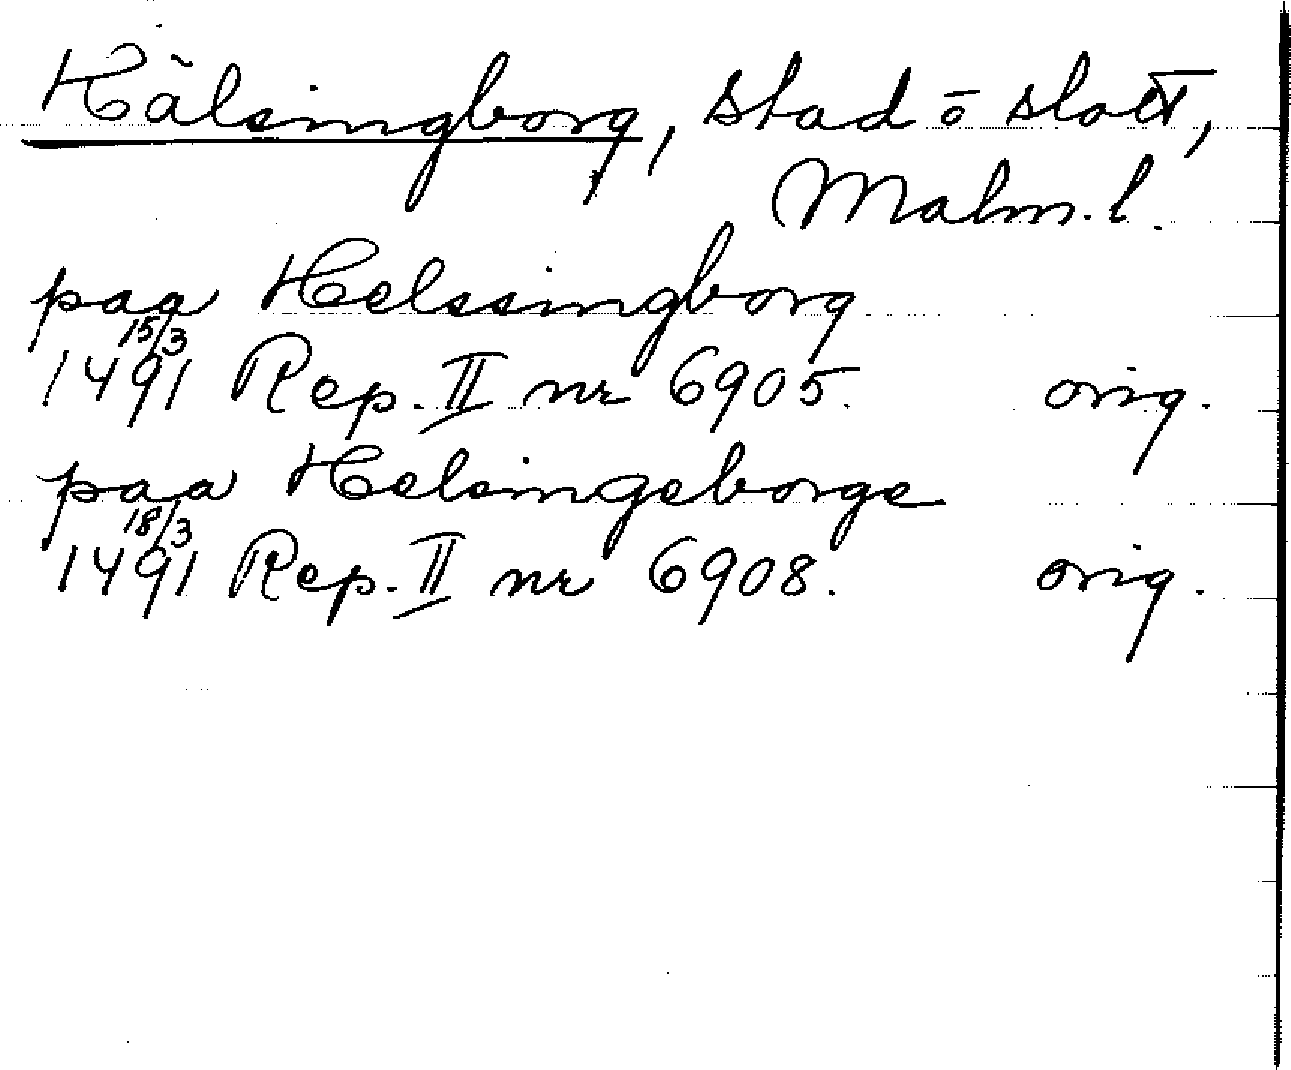 Hälsingborg, stad o slott,
Malm. l.
paa Helssingborg
15/3
1491 Rep. II nr 6905. orig.
paa Helsingeborge
18/3
1491 Rep. II nr 6908. orig.